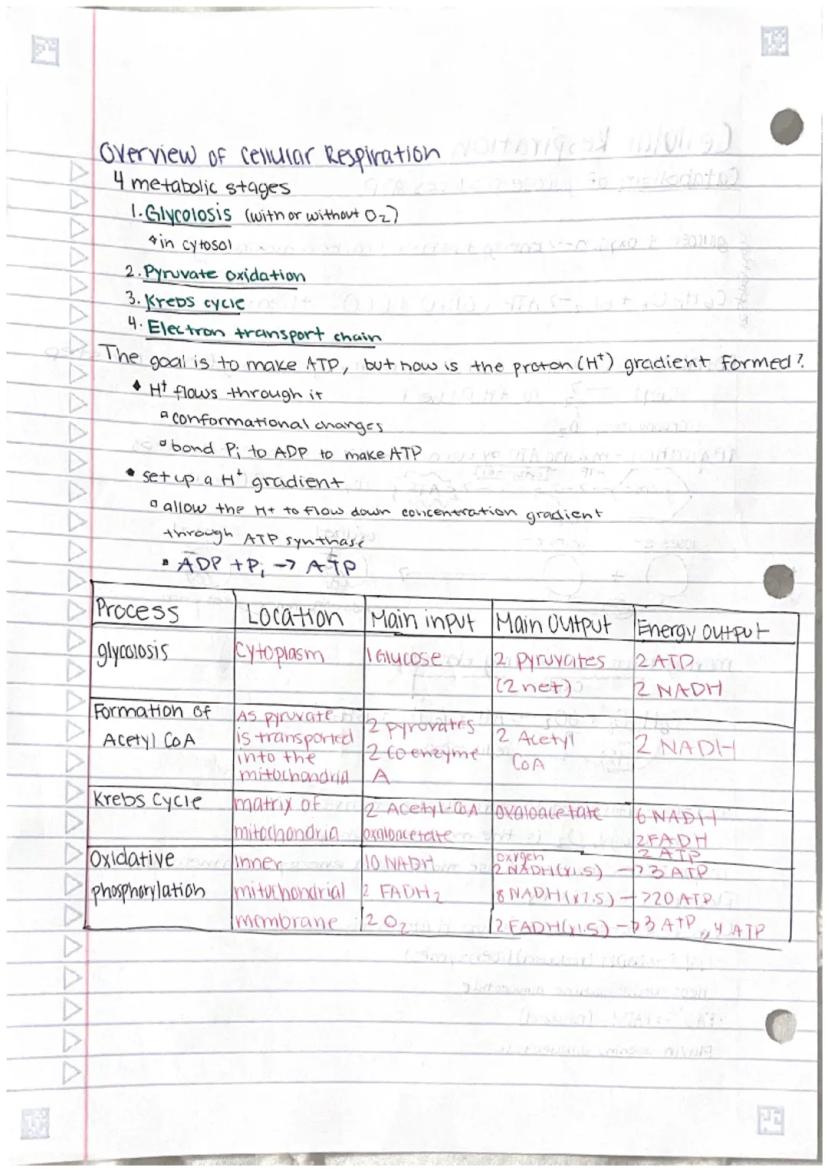 Overview of Cellular Respiration
4 metabolic stages
1. Glycolosis (with or without O₂)
in cytosol
2. Pyruvate oxidation
3. Krebs cycle
4. Electron transport chain
The goal is to make ATP, but how is the proton (H⁺) gradient formed?
H⁺ flows through it
conformational changes
bond Pᵢ to ADP to make ATP
set up a H⁺ gradient
allow the H+ to flow down concentration gradient
through ATP synthase
ADP + Pᵢ → ATP
Process Location Main input Main Output Energy output
glycolosis Cytoplasm 1 Glucose 2 pyruvates 2 ATP
(2 net) 2 NADH
Formation of As pyruvate 2 pyrovates 2 Acetyl 2 NADH
Acetyl CoA is transported 2 Coenzyme CoA
into the A
mitochondria
Krebs Cycle matrix of 2 Acetyl-CoA oxaloacetate 6 NADH
mitochondria oxaloacetate 2 FADH
2 ATP
Oxidative inner 10 NADH oxygen
2 NADH (x1.5) → 3 ATP
phosphorylation mitochondrial 2 FADH₂ 8 NADH (x2.5) → 20 ATP
membrane 2 O₂ 2 FADH (x1.5) → 3 ATP 4 ATP